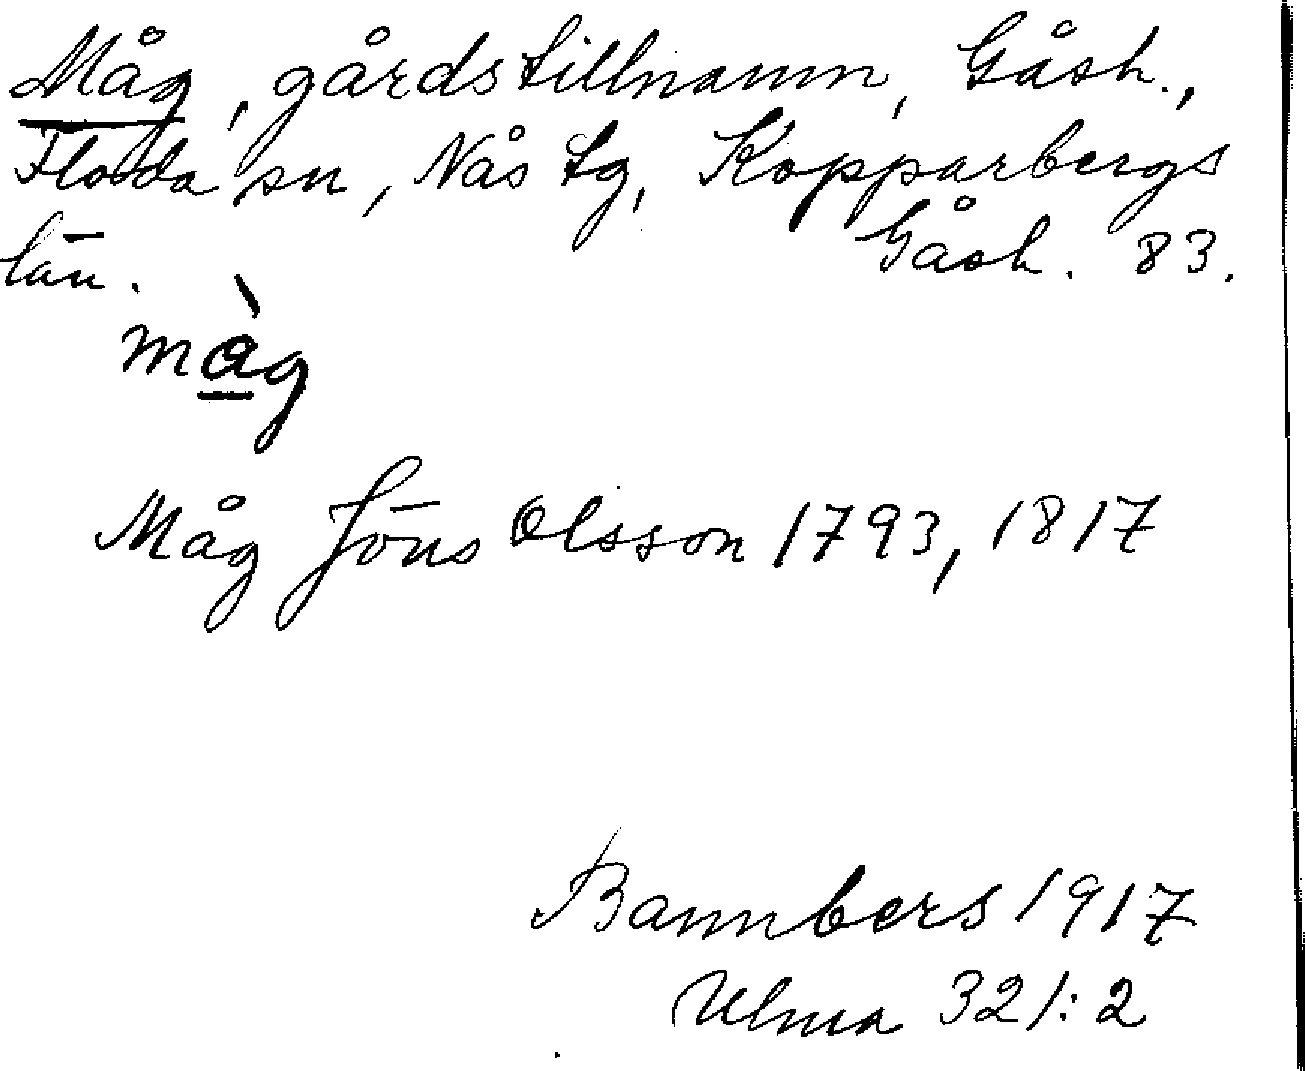 Måg, gårdstillnamn, Gåsh.,
Floda sn, Nås tg, Kopparbergs
län. Gåsh. 83.
màg
Måg Jöns Olsson 1793, 1817
Bannbers 1917
Ulma 321:2